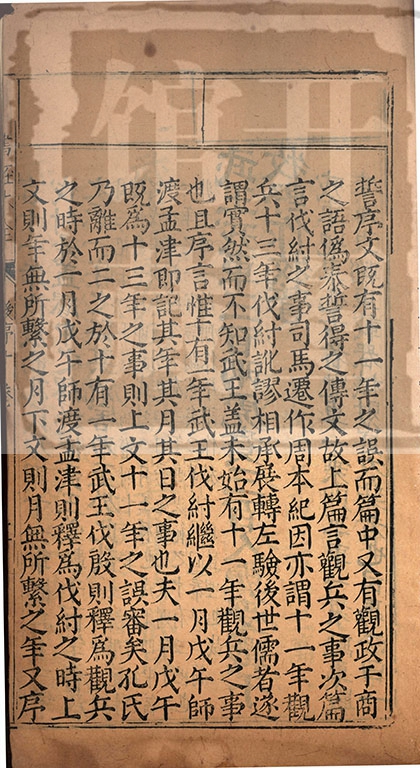 誓序文既有十一年之誤而篇中又有觀政于商
之語偽泰誓得之傳文故上篇言觀兵之事次篇
言伐紂之事司馬遷作周本紀因亦謂十一年觀
兵十三年伐紂訛謬相承展轉左驗後世儒者遂
謂實然而不知武王蓋未始有十一年觀兵之事
也且序言惟十有一年武王伐紂繼以一月戊午師
渡孟津即記其年其月其日之事也夫一月戊午
既為十三年之事則上文十一年之誤審矣孔氏
乃離而二之於十有一年武王伐殷則釋為觀兵
之時於一月戊午師渡孟津則釋為伐紂之時上
文則年無所繫之月下文則月無所繫之年又序